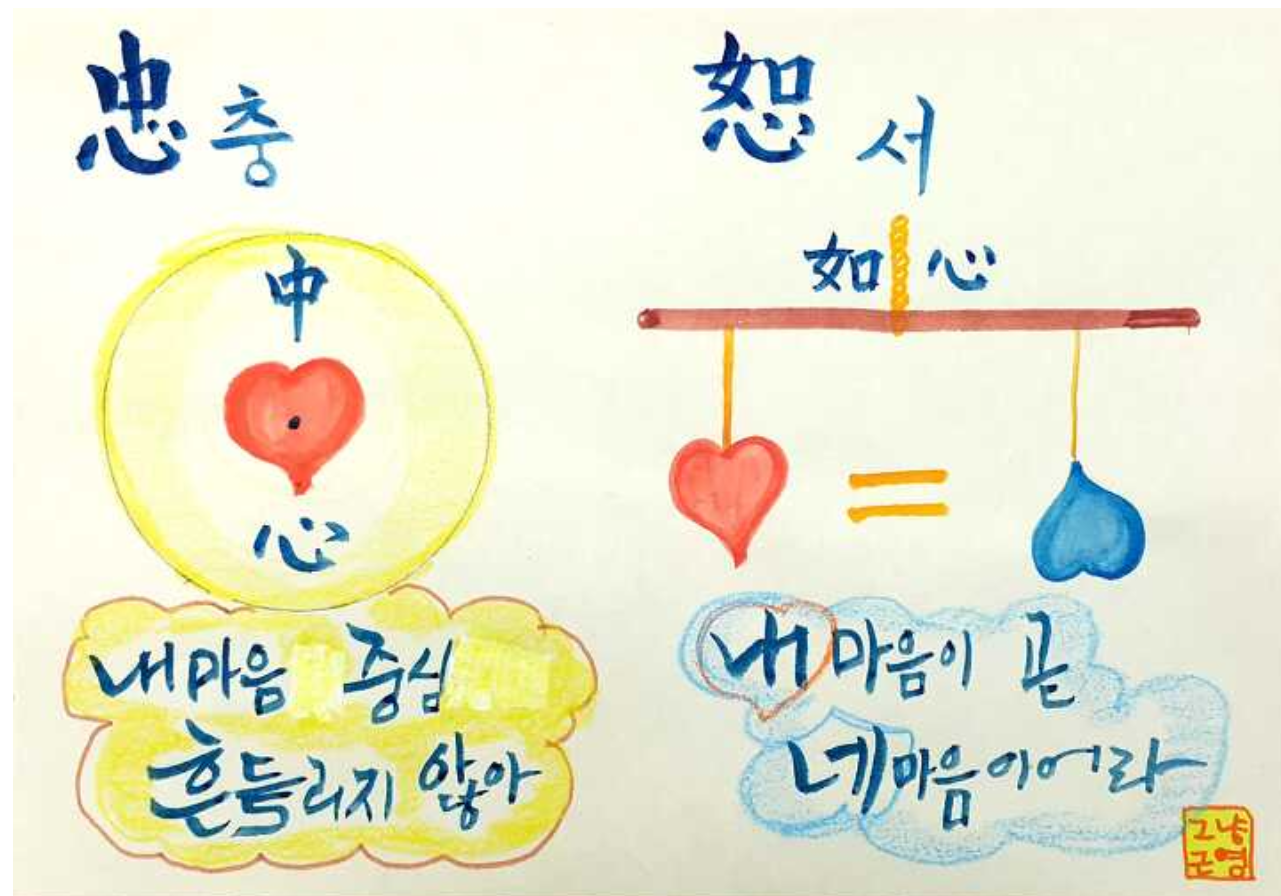 忠 충
中
心
내마음 중심
흔들리지 않아
恕 서
如 心
내마음이 곧
네마음이어라
그냥
근영